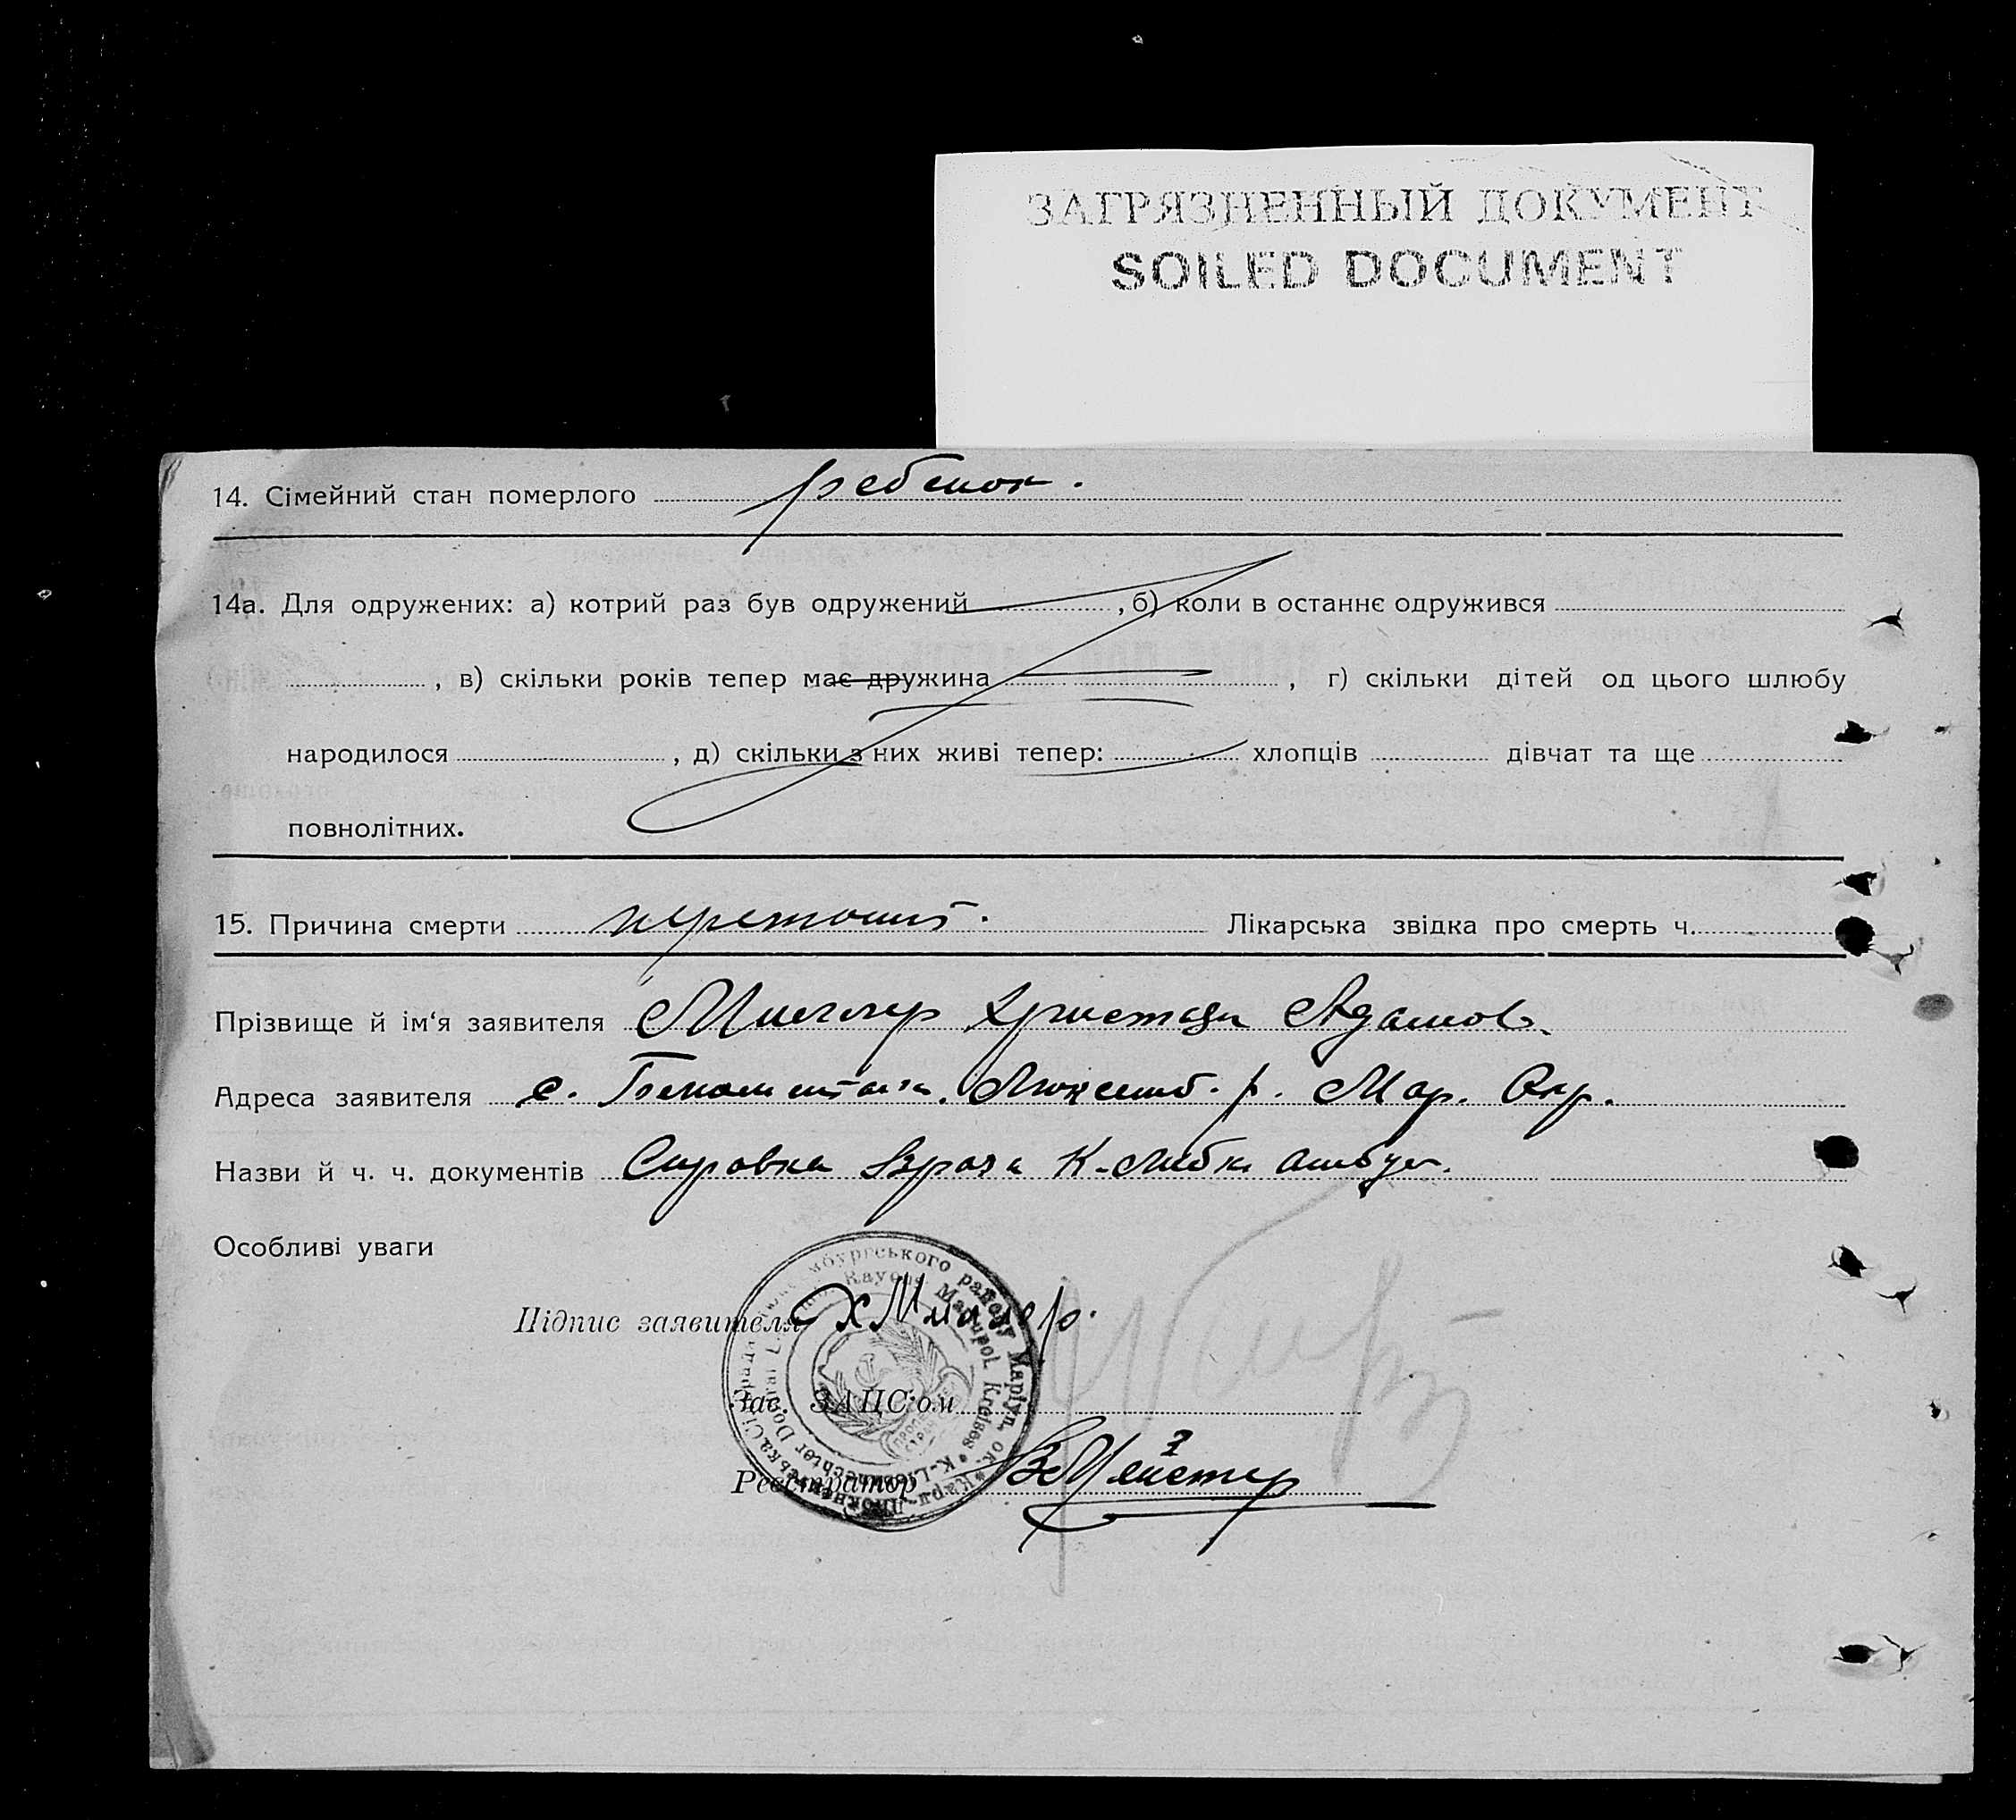 ЗАГРЯЗНЕННЫЙ ДОКУМЕНТ
SOILED DOCUMENT
14. Сімейний стан померлого ребенок.
14а. Для одружених: а) котрий раз був одружений , б) коли в останнє одружився
, в) скільки років тепер має дружина , г) скільки дітей од цього шлюбу
народилося , д) скільки з них живі тепер: хлопців дівчат та ще
повнолітних.
15. Причина смерти Лікарська звідка про смерть ч.
Прізвище й ім‘я заявителя Миллер Христиан Адамов.
Адреса заявителя с. Люксемб. р. Мар. Окр.
Назви й ч. ч. документів Справка Врача К-Либк. амбул.
Особливі уваги
Підпис заявителя Х Миллер.
Зас. ЗАЦС'ом
Реєстратор Мейстер